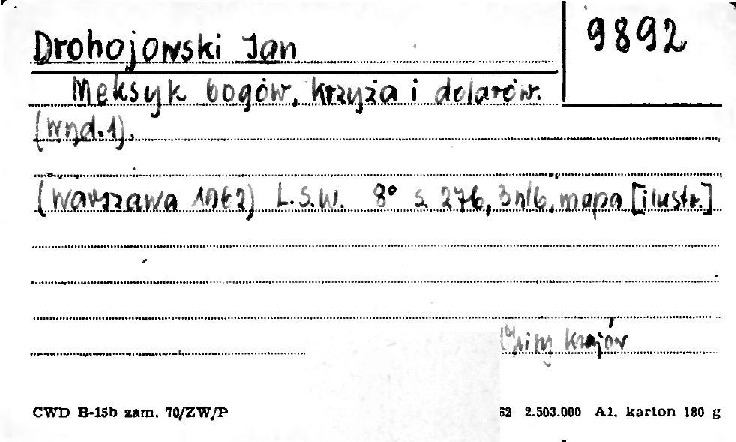 Drohojowski Jan
9892
Meksyk bogów, krzyża i dolarów.
(wyd.1).
(Warszawa 1962) L.S.W. 8° s. 276, 3 nlb, mapa [ilustr.]
krajów
CWD B-15b zam. 70/ZW/P
62 2.503.000 A1. karton 180 g